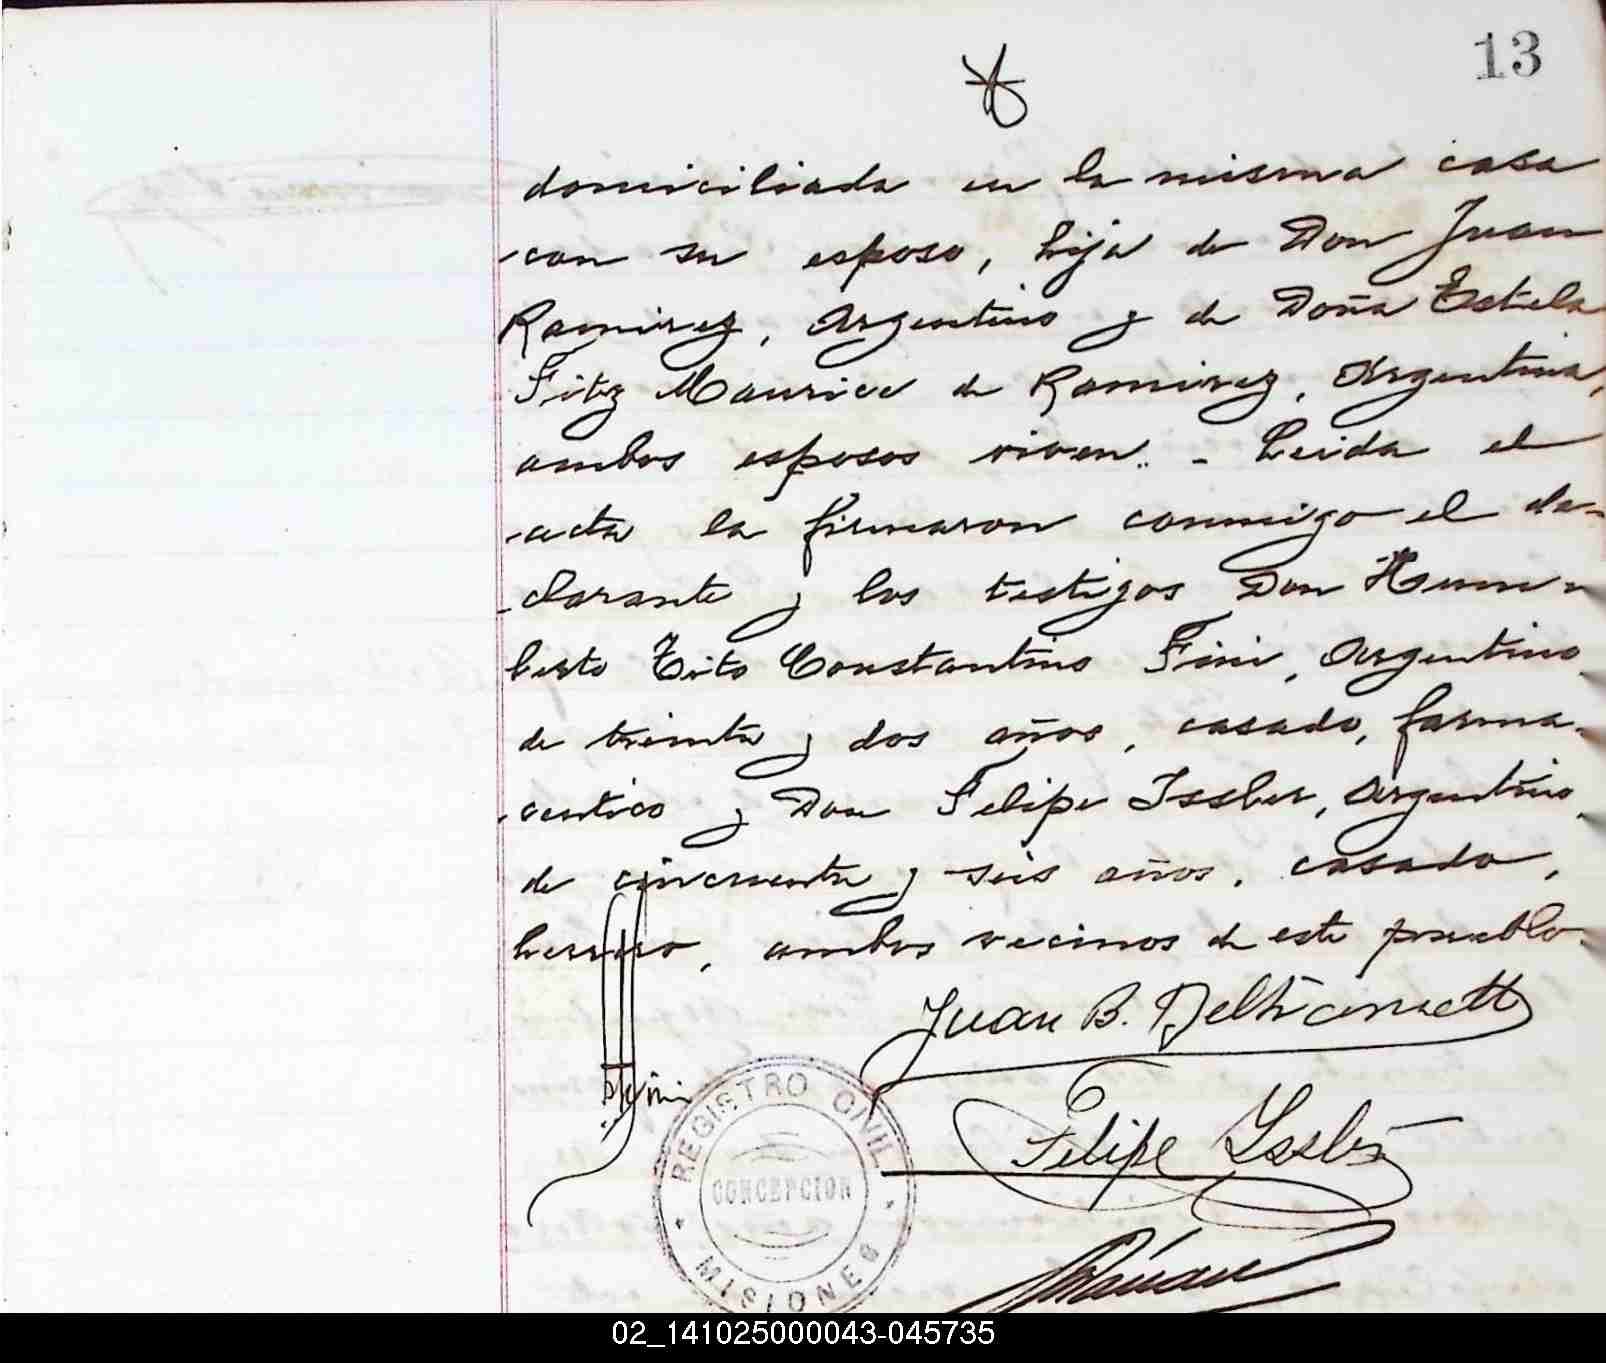 13
domiciliada en la misma casa
con su esposo, hija de Don Juan
Ramirez, Argentino y de Doña Estela
Fitz Maurice de Ramirez, Argentina,
ambos esposos viven. - Leida el
acta la firmaron conmigo el de-
clarante y los testigos Don Hum-
berto Tito Constantino Fini, Argentino
de treinta y dos años, casado, farma-
ceutico y Don Felipe Issler, Argentino,
de cincuenta y seis años, casado,
herrero, ambos vecinos de este pueblo.
Juan B.
Felipe Issler
REGISTRO CIVIL
CONCEPCION
MISIONES
02_141025000043-045735